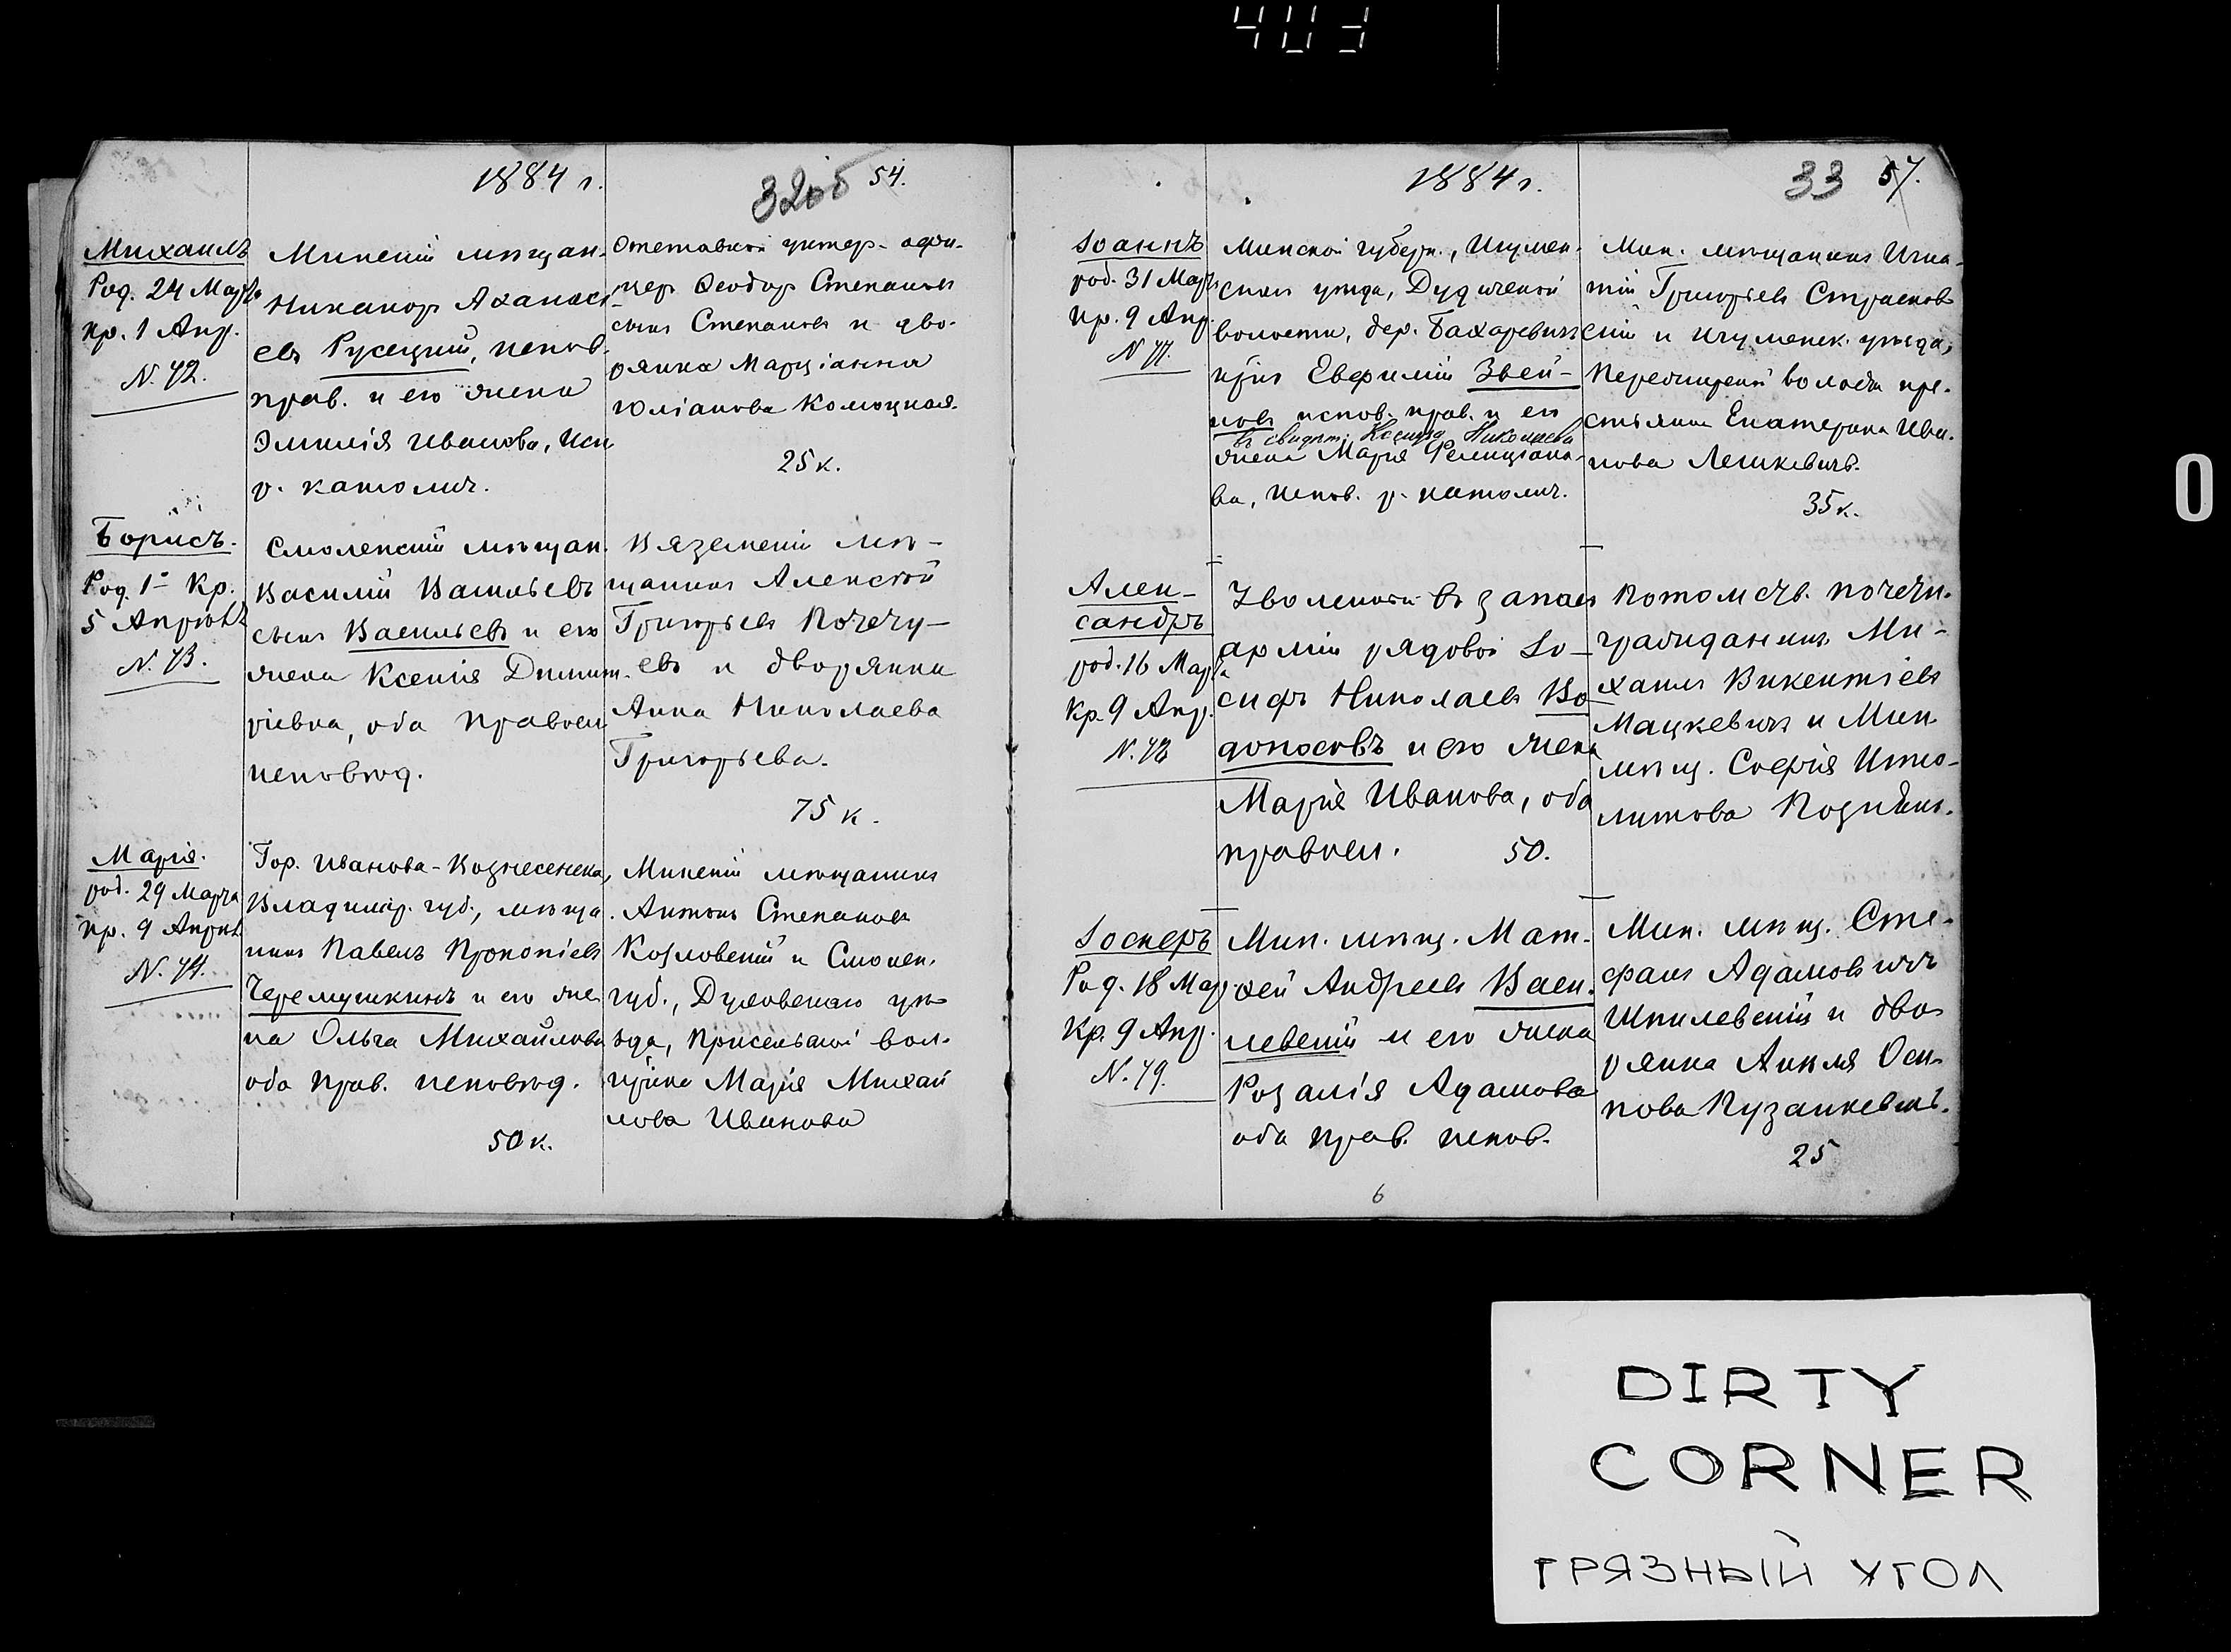 403
1884 г.
32об
54.
Михаилъ
Род. 24 Марта
кр. 1 Апр.
N. 72.
Минскій мѣщан.
Никаноръ Аѳанась-
евъ Русецкій, испов.
прав. и его жена
Эмилія Иванова, исп
р. католич.
Отставной унтер-офи-
церъ Ѳеодоръ Степановъ
сынъ Степановъ и дво-
рянка Марціанна
Юліанова Колоцкая.
25 к.
Борисъ.
Род. 1го Кр.
5 Апрѣля
N. 73.
Смоленскій мѣщан.
Василій Васильевъ
сынъ Васильевъ и его
жена Ксенія Димит-
ріевна, оба правосл
исповѣд.
Вяземскій мѣ-
щанинъ Алексѣй
Григорьевъ Почечу-
евъ и дворянка
Анна Николаева
Григорьева.
75 к.
Марія.
род. 29 Марта
кр. 9 Апрѣл
N. 74.
Гор. Иванова-Вознесенска,
Владимір. губ., мѣща
нинъ Павелъ Прокопіевъ
Черемушкинъ и его же
на Ольга Михайлова
оба прав. исповѣд.
50 к.
Минскій мѣщанинъ
Антонъ Степановъ
Козловскій и Смолен.
губ., Духовскаго уѣ-
зда, Присельской вол.
кр-ка Марія Михай
лова Иванова
1884 г.
33
57.
Іоаннъ
род. 31 Мар.
кр. 9 Апр.
N 77.
Минской губерн., Игумен-
скаго уѣзда, Дудичской
волости, дер. Бахаревичи
кр-нъ Евфимій Звей-
новъ испов. прав. и его
въ свидѣт. Ксенія Николаева
жена Марія Фелиціано-
ва, испов. р. католич.
Мин. мѣщанинъ Игна-
тій Григорьевъ Стралков
скій и Игуменск. уѣзда,
волости кре-
стьянка Екатерина Ива-
нова Лешкевичъ.
35 к.
Алек-
сандръ
род. 16 Марта
Кр. 9 Апр.
N. 78
Уволенный въ запасъ
арміи рядовой Іо-
сифъ Николаевъ Во
доносовъ и его жена
Марія Иванова, оба
правосл. 50.
Потомств. почетн.
гражданинъ Ми-
хаилъ Викентіевъ
Мацкевичъ и Мин.
мѣщ. Софія Ипо-
литова
Іосифъ
Род. 18 Мар.
Кр. 9 Апр.
N. 79.
Мин. мѣщ. Мат-
ѳей Андреевъ Васи-
левскій и его жена
Розалія Адамова
оба прав. испов.
Мин. мѣщ. Сте-
фанъ Адамовичъ
Шпилевскій и дво-
рянка Анеля Оси-
пова Пузанкевичъ.
25
6
0
DIRTY
CORNER
ГРЯЗНЫЙ УГОЛ